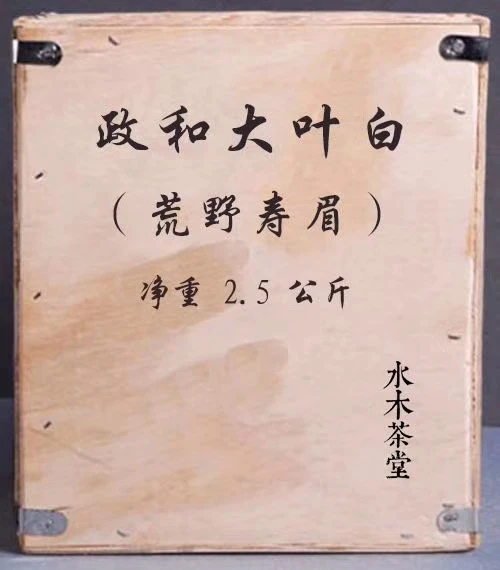 政和大叶白
（荒野寿眉）
净重 2.5 公斤
水木茶堂